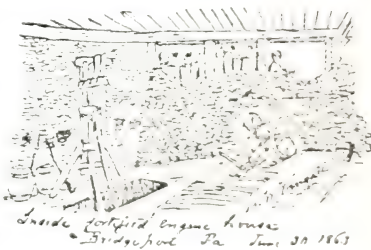 Inside fortified engine house
Bridgeport Pa June 30 1863